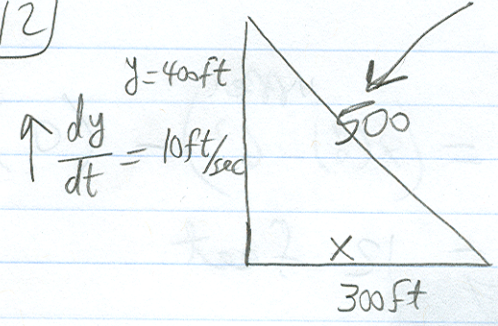 12
y=400ft
↑ dy/dt = 10ft/sec
500
x
300ft